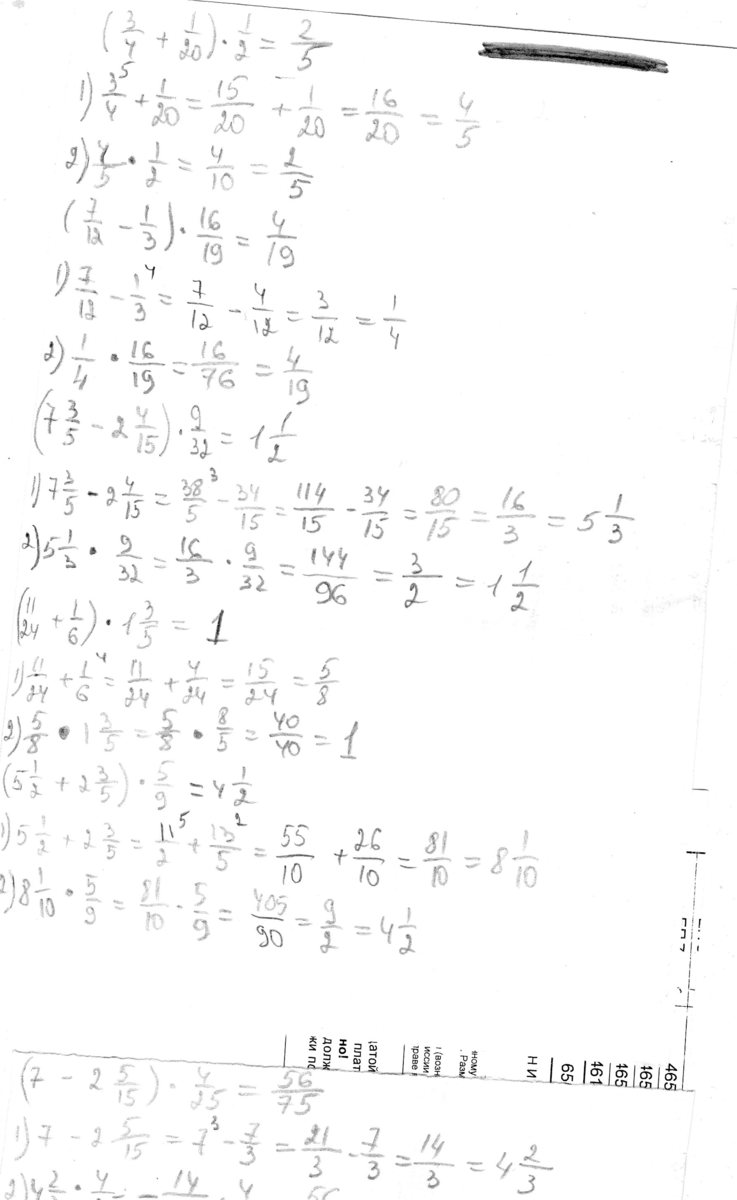 (3/4 + 1/20) · 1/2 = 2/5
1) 3/4 ⁵ + 1/20 = 15/20 + 1/20 = 16/20 = 4/5
2) 4/5 · 1/2 = 4/10 = 2/5
(7/12 - 1/3) · 16/19 = 4/19
1) 7/12 - 1/3 ⁴ = 7/12 - 4/12 = 3/12 = 1/4
2) 1/4 · 16/19 = 16/76 = 4/19
(7 3/5 - 2 4/15) · 9/32 = 1 1/2
1) 7 3/5 - 2 4/15 = 38/5 ³ - 34/15 = 114/15 - 34/15 = 80/15 = 16/3 = 5 1/3
2) 5 1/3 · 9/32 = 16/3 · 9/32 = 144/96 = 3/2 = 1 1/2
(11/24 + 1/6) · 1 3/5 = 1
1) 11/24 + 1/6 ⁴ = 11/24 + 4/24 = 15/24 = 5/8
2) 5/8 · 1 3/5 = 5/8 · 8/5 = 40/40 = 1
(5 1/2 + 2 3/5) · 5/9 = 4 1/2
1) 5 1/2 + 2 3/5 = 11/2 ⁵ + 13/5 ² = 55/10 + 26/10 = 81/10 = 8 1/10
2) 8 1/10 · 5/9 = 81/10 · 5/9 = 405/90 = 9/2 = 4 1/2
465
165
165
461
65
НИ
ному
. Разм
и (возн
иссии
траве
атой
плат
но!
ДОЛЖ
жи по
(7 - 2 5/15) · 4/25 = 56/75
1) 7 - 2 5/15 = 7 ³ - 7/3 = 21/3 - 7/3 = 14/3 = 4 2/3